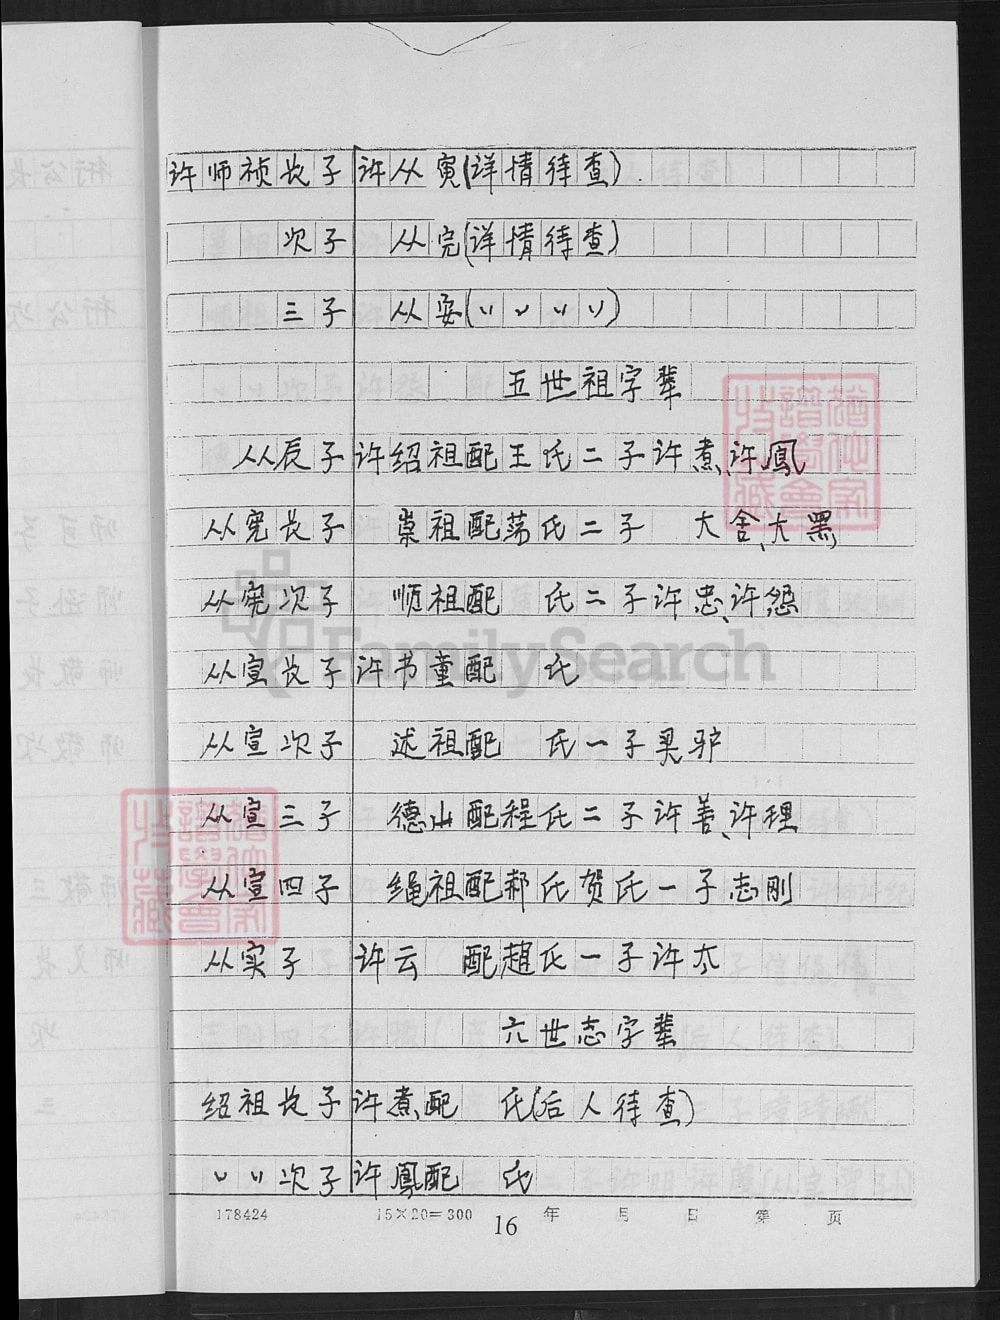 许师祯长子 许从寅(详情待查).
次子 从完(详情待查)
三子 从安(〃〃〃〃)
五世祖字辈
从辰子 许绍祖配王氏二子许煮、许鳳
从宪长子 崇祖配荡氏二子 大舍、大黑
从宪次子 顺祖配 氏二子许忠、许怨
从宣长子 许书童配 氏
从宣次子 述祖配 氏一子 驴
从宣三子 德山配程氏二子许善、许理
从宣四子 绳祖配郝氏贺氏一子志刚
从实子 许云 配趙氏一子许太
六世志字辈
绍祖长子 许煮配 氏(后人待查)
〃〃次子 许鳳配 氏
178424 15×20=300 年 月 日 第 页
16
FamilySearch